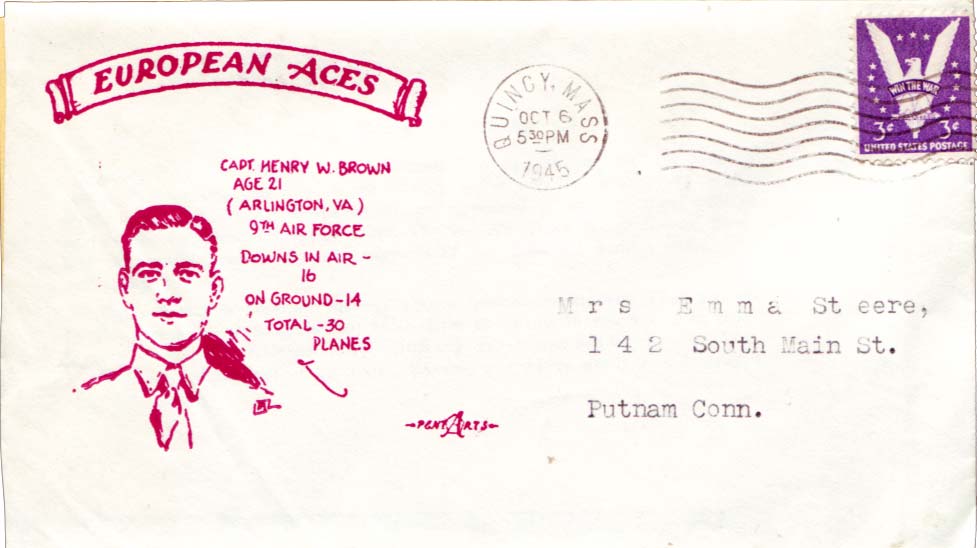 EUROPEAN ACES
CAPT. HENRY W. BROWN
AGE 21
(ARLINGTON, VA)
9TH AIR FORCE
DOWNS IN AIR -
16
ON GROUND - 14
TOTAL - 30
PLANES
PENT ARTS
QUINCY, MASS
OCT 6
5 30 PM
1945
WIN THE WAR
3¢ 3¢
UNITED STATES POSTAGE
Mrs Emma Steere,
142 South Main St.
Putnam Conn.